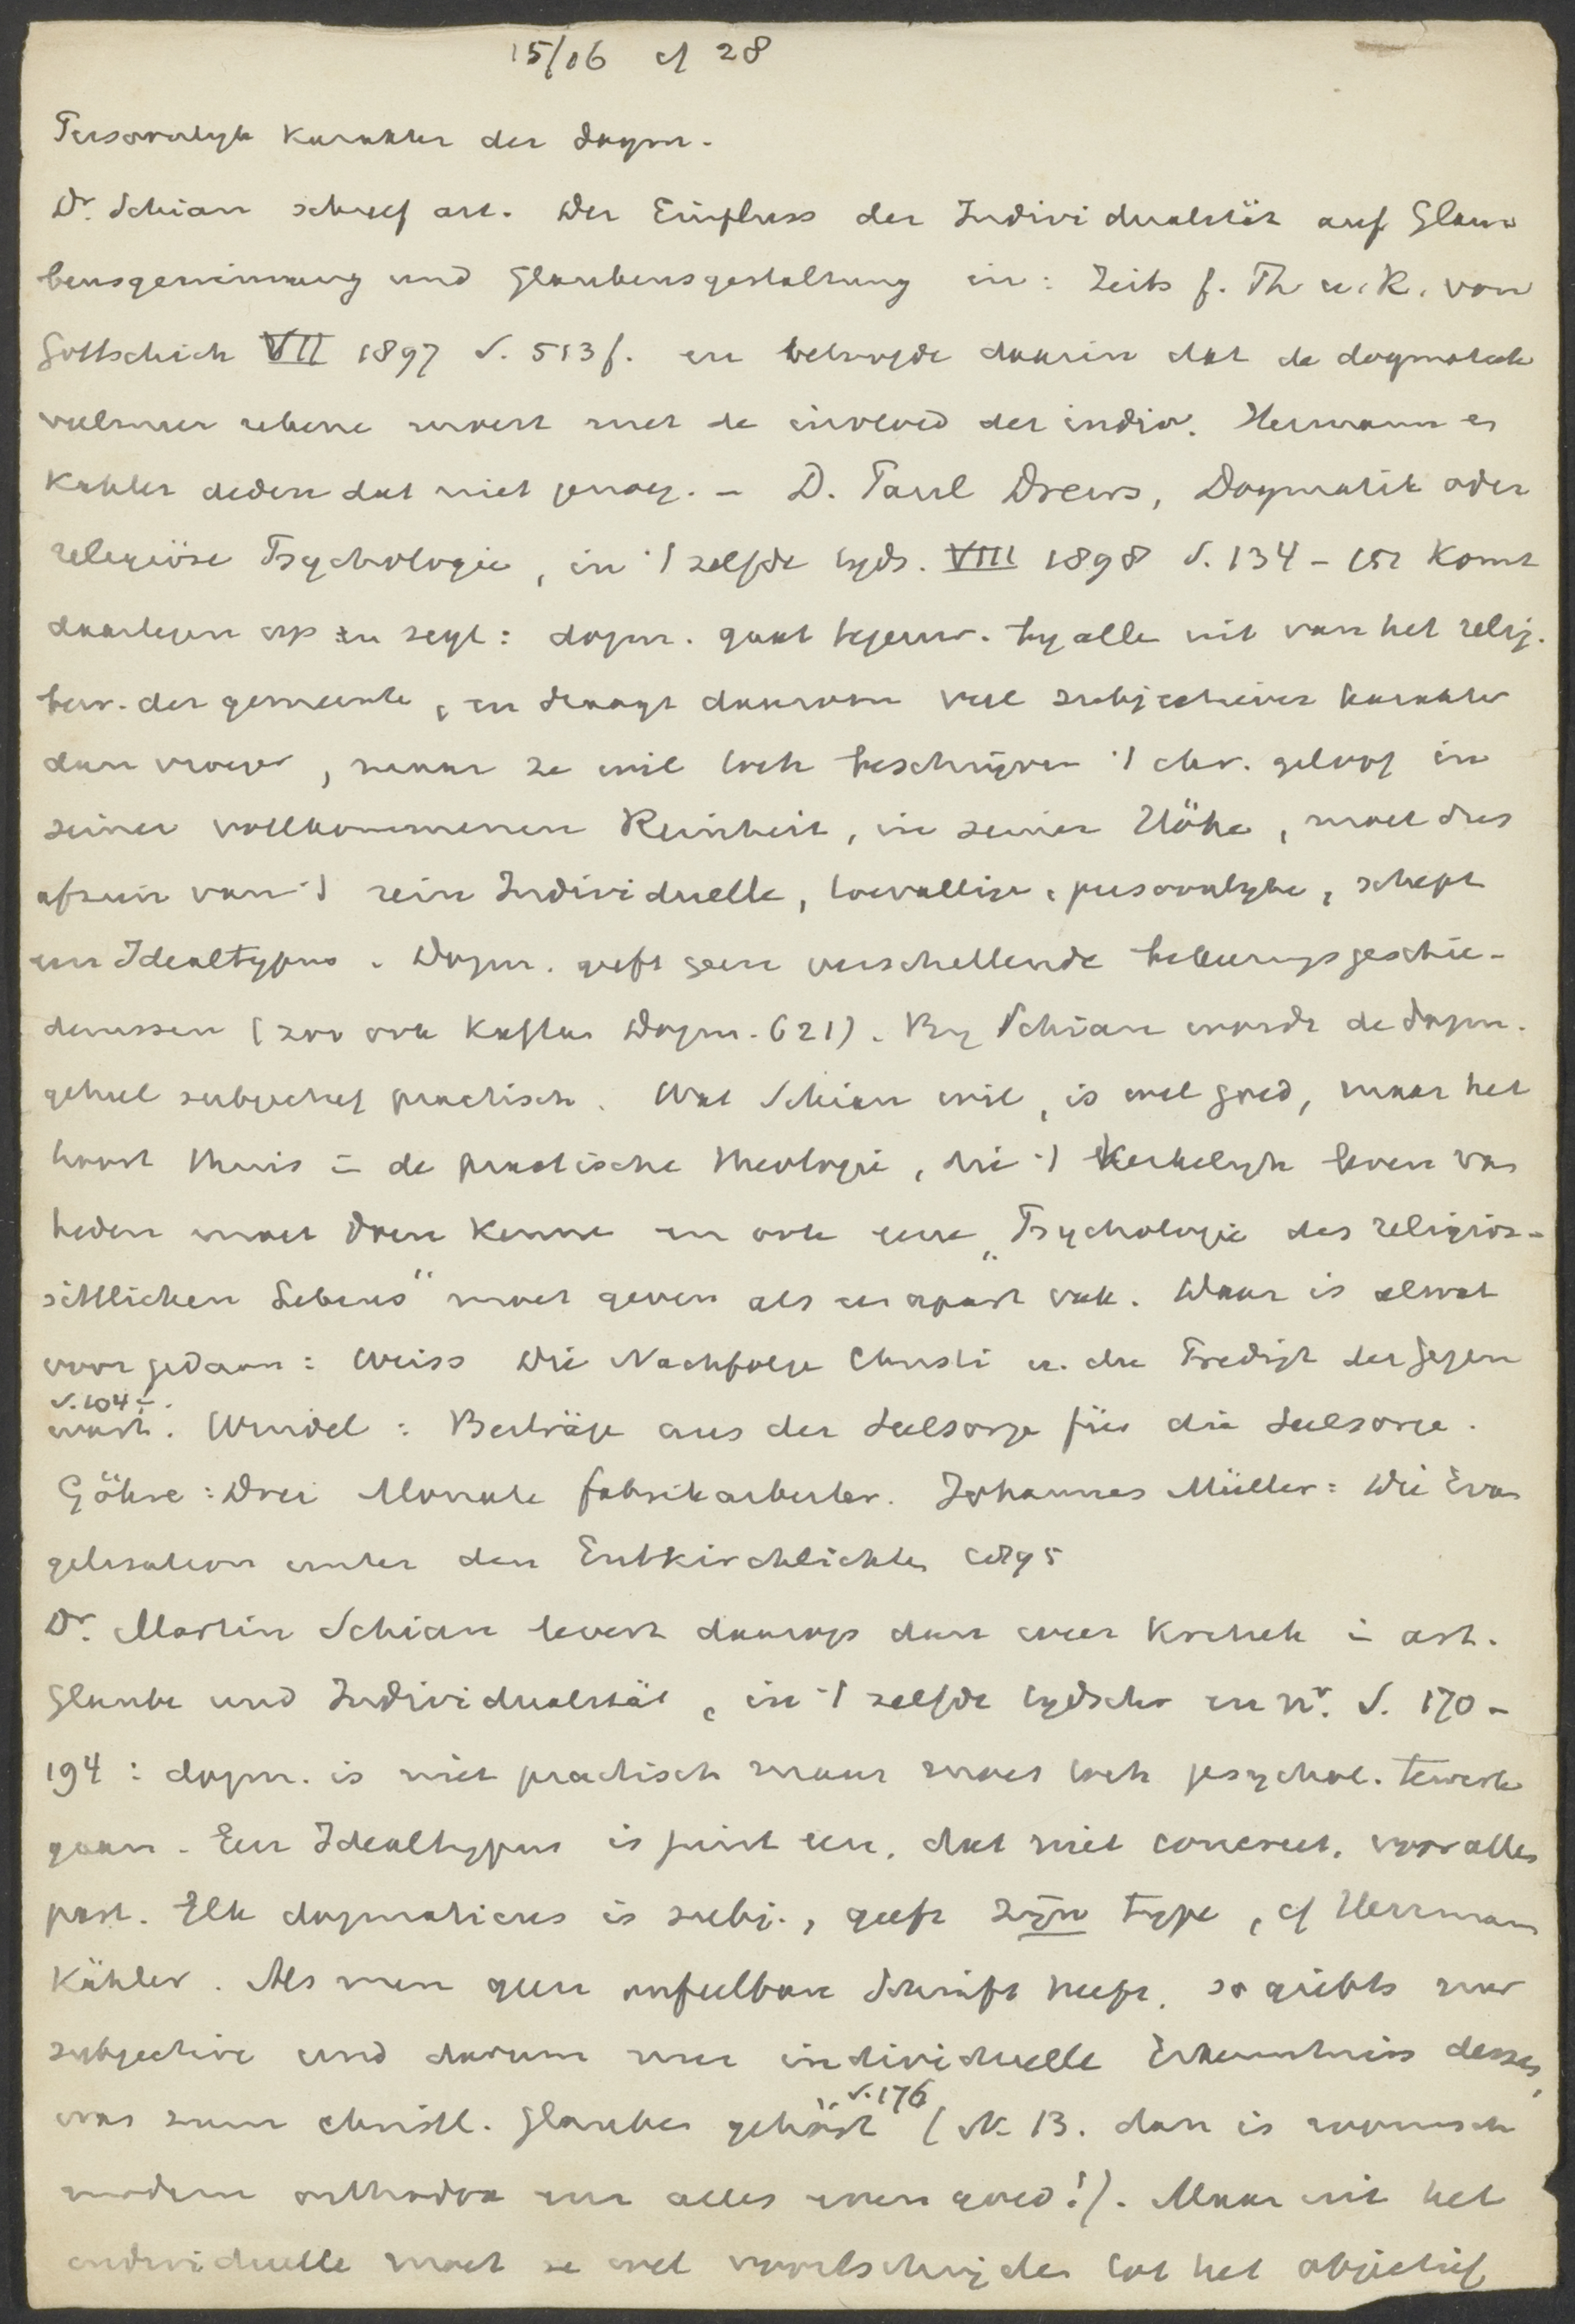 15/06 cf 28
Persoonlyk karakter der dogm.
Dr. Schian schreef art. Der Einfluss der Individualität auf Glau
bensgewinnung und Glaubensgestaltung in: Zeits f. Th u. K. von
Gottschick VII 1897 S. 513 f. en betoogde daarin dat de dogmatiek
veelmeer rekene moest met de invloed der indiv. Hermann en
Kahler deden dat niet genoeg. – D. Paul Drews, Dogmatik oder
religiöse Psychologie, in 't zelfde tyds. VIII 1898 S. 134 – 151 komt
daartegen op en zegt: dogm. gaat tegenw. by alle uit van het relig.
bew. der gemeente, en draagt daarom veel subjectiever karakter
dan vroeger, maar ze wil toch beschrijven 't chr. geloof in
seiner vollkommenen Reinheit, in seiner Höhe, moet dus
afzien van 't rein Individuelle, toevallige, persoonlyke, schept
een Idealtypus. Dogm. geeft geen verschillende bekeeringsgeschie-
denissen (zoo ook Kaftan Dogm. 621). By Schian wordt de dogm.
geheel subjectief practisch. Wat Schian wil, is wel goed, maar het
hoort thuis in de practische theologie, die 't kerkelyk leven van
heden moet doen kenne en ook eene „Psychologie des religiös-
sittlichen Lebens" moet geven als een apart vak. Daar is al wat
voor gedaan: Weiss Die Nachfolge Christi u. die Predigt der Gegen
S. 104 –.
wart. Wendel: Beiträge aus der Seelsorge für die Seelsorge.
Göhre: Drei Monate Fabrikarbeiter. Johannes Müller: Die Evan
gelisation unter den Entkirchlichten 1895
Dr. Martin Schian levert daarop dan weer kritiek in art.
Glaube und Individualität, in 't zelfde tydschr en nr. S. 170 –
194: dogm. is niet practisch maar moet toch psychol. tewerk
gaan. Een Idealtypus is juist een, dat niet concreet, voor alles
past. Elk dogmaticus is subj., geeft zijn type, cf Herrmann
Kähler. Als men geen onfeilbare Schrift heeft, so giebts nur
subjective und darum nur individuelle Erkenntniss dessen,
was zum christl. Glauben gehört" S. 176 (N.B. dan is roomsch
modern orthodox en alles even goed!). Maar uit het
individuelle moet ze wel voortschrijden tot het objectief